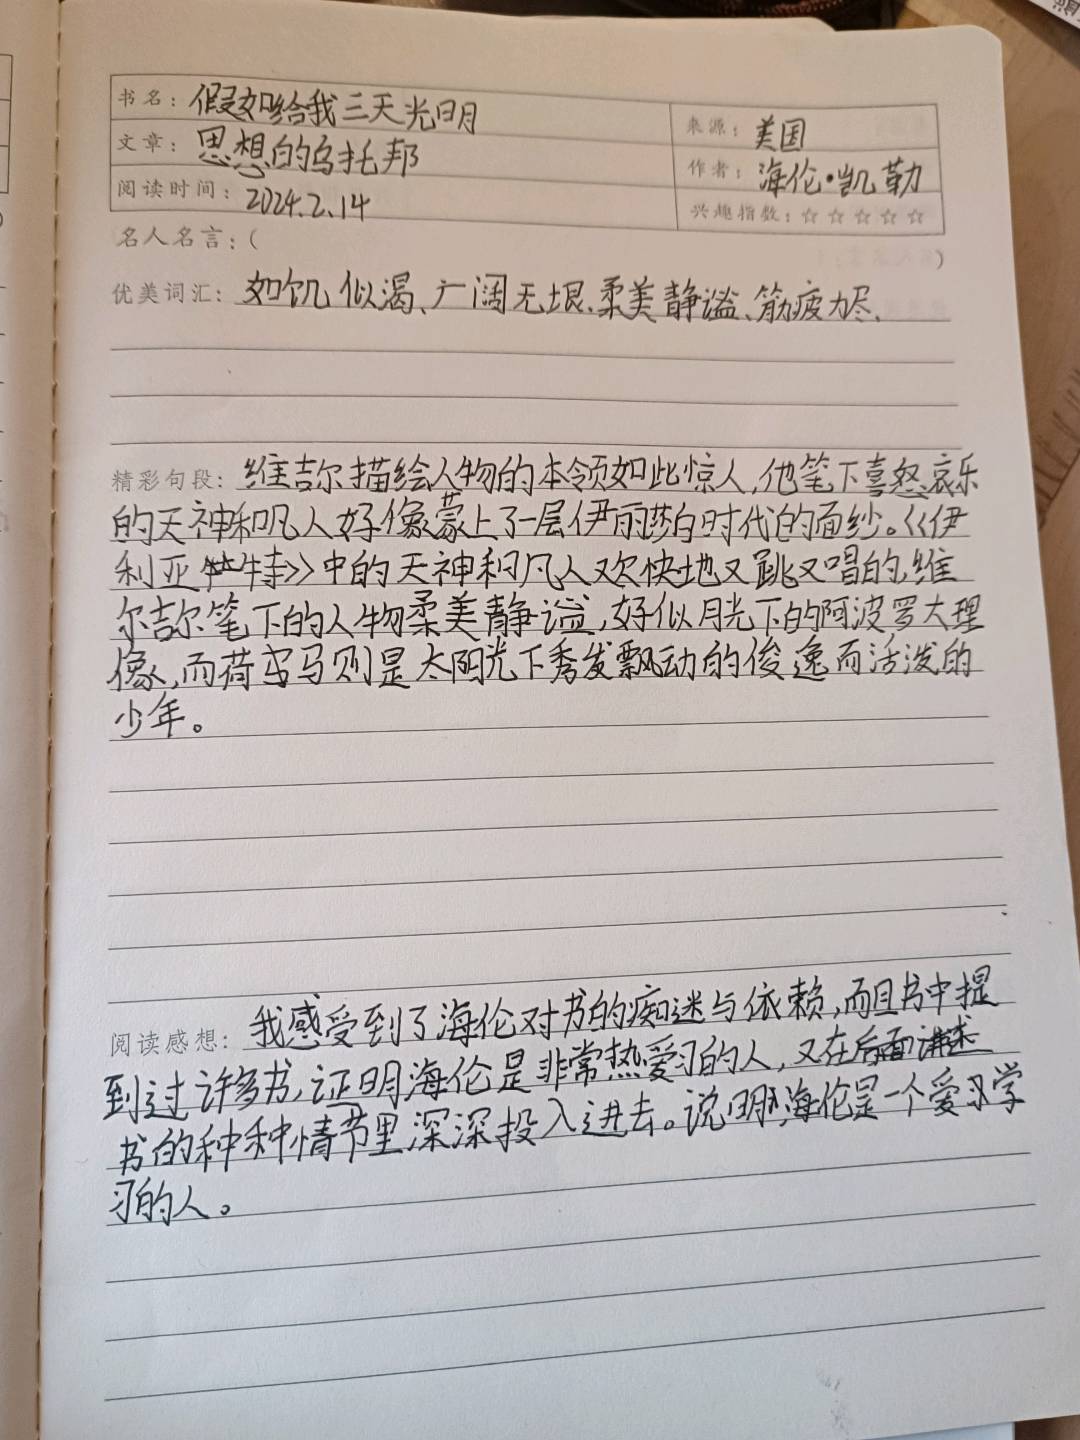 书名：假如给我三天光明
来源：美国
文章：思想的乌托邦
作者：海伦·凯勒
阅读时间：2024.2.14
兴趣指数：☆☆☆☆☆
名人名言：（ ）
优美词汇：如饥似渴、广阔无垠、柔美静谧、筋疲力尽、
精彩句段：维吉尔描绘人物的本领如此惊人，他笔下喜怒哀乐
的天神和凡人好像蒙上了一层伊丽莎白时代的面纱。《伊
利亚特》中的天神和凡人欢快地又跳又唱的，维
尔吉尔笔下的人物柔美静谧，好似月光下的阿波罗大理
像，而荷马则是太阳光下秀发飘动的俊逸而活泼的
少年。
阅读感想：我感受到了海伦对书的痴迷与依赖，而且书中提
到过许多书，证明海伦是非常热爱习的人，又在后面讲述
书的种种情节里深深投入进去。说明，海伦是一个爱习学
习的人。